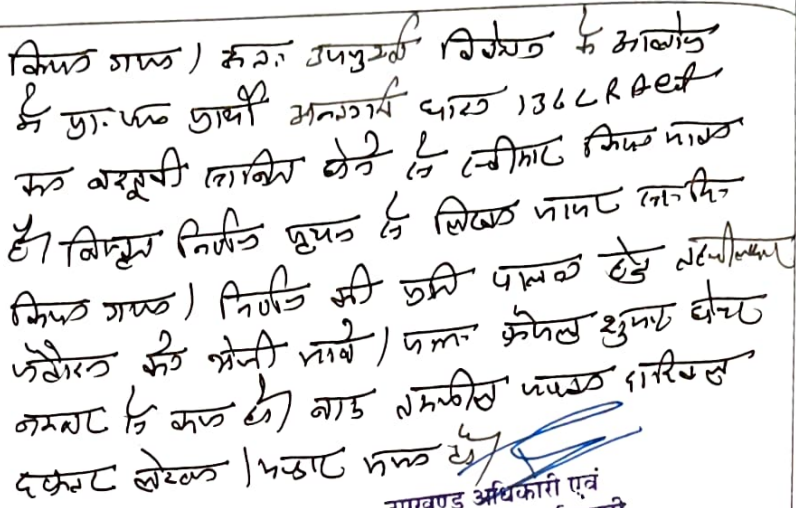 किया गया। अतः उपयुक्त विवेचन के आलोक
में प्रा. पत्र प्रार्थी अन्तर्गत धारा 136 LR Act
का बखूबी साबित होने से स्वीकार किया जाता
है। विस्तृत निर्णय पृथक से लिखा जाकर शामिल
किया गया। निर्णय की प्रति पालना हेतु तहसीलदार
को भेजी जावे। पत्रा. फैसल शुमार होकर
नम्बर से कम हो। बाद तकमील पत्रा. दाखिल
दफ्तर
उपखण्ड अधिकारी एवं